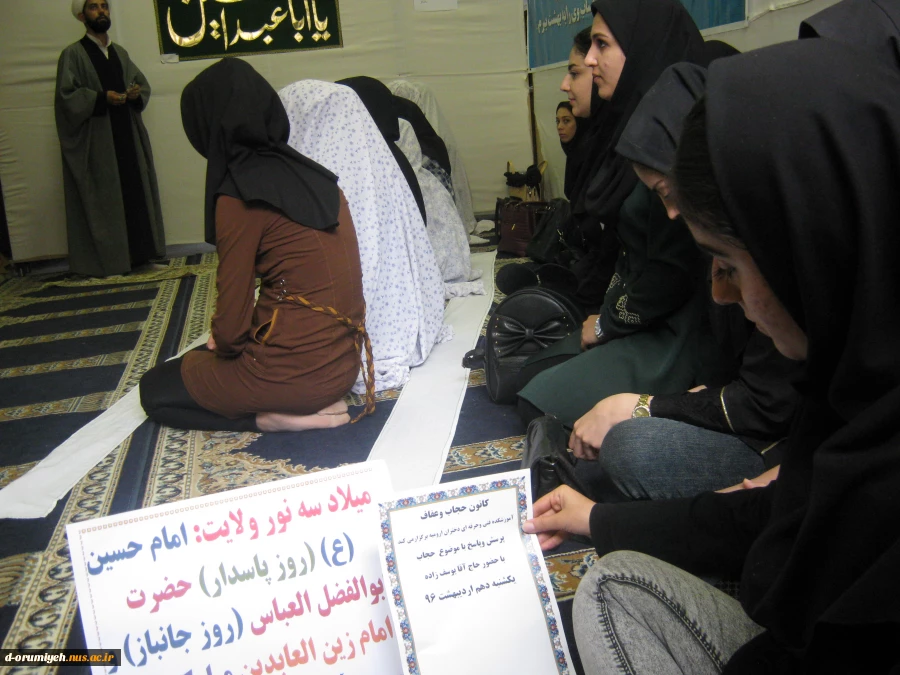 یا اباعبدالله
میلاد سه نور ولایت: امام حسین
(ع) (روز پاسدار) حضرت
بوالفضل العباس (روز جانباز) و
امام زین العابدین
کانون حجاب وعفاف
آموزشکده فنی وحرفه ای دختران ارومیه برگزار می کند
پرسش وپاسخ با موضوع حجاب
با حضور حاج آقا یوسف زاده
یکشنبه دهم اردیبهشت ۹۶
d-orumiyeh.nus.ac.ir